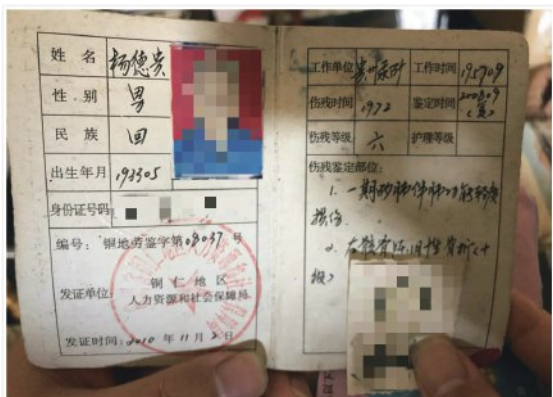 姓 名 杨德贵
性 别 男
民 族 回
出生年月 193305
身份证号码
编号:铜地劳鉴字第08037号
发证单位: 铜 仁 地 区
人力资源和社会保障局
发证时间:2010 年 11 月 2 日
工作单位 贵州汞矿 工作时间 195709
伤残时间 1972 鉴定时间 200309
(复)
伤残等级 六 护理等级
伤残鉴定部位:
1. 一期矽肺伴肺功能轻度
损伤
2. 右
级)